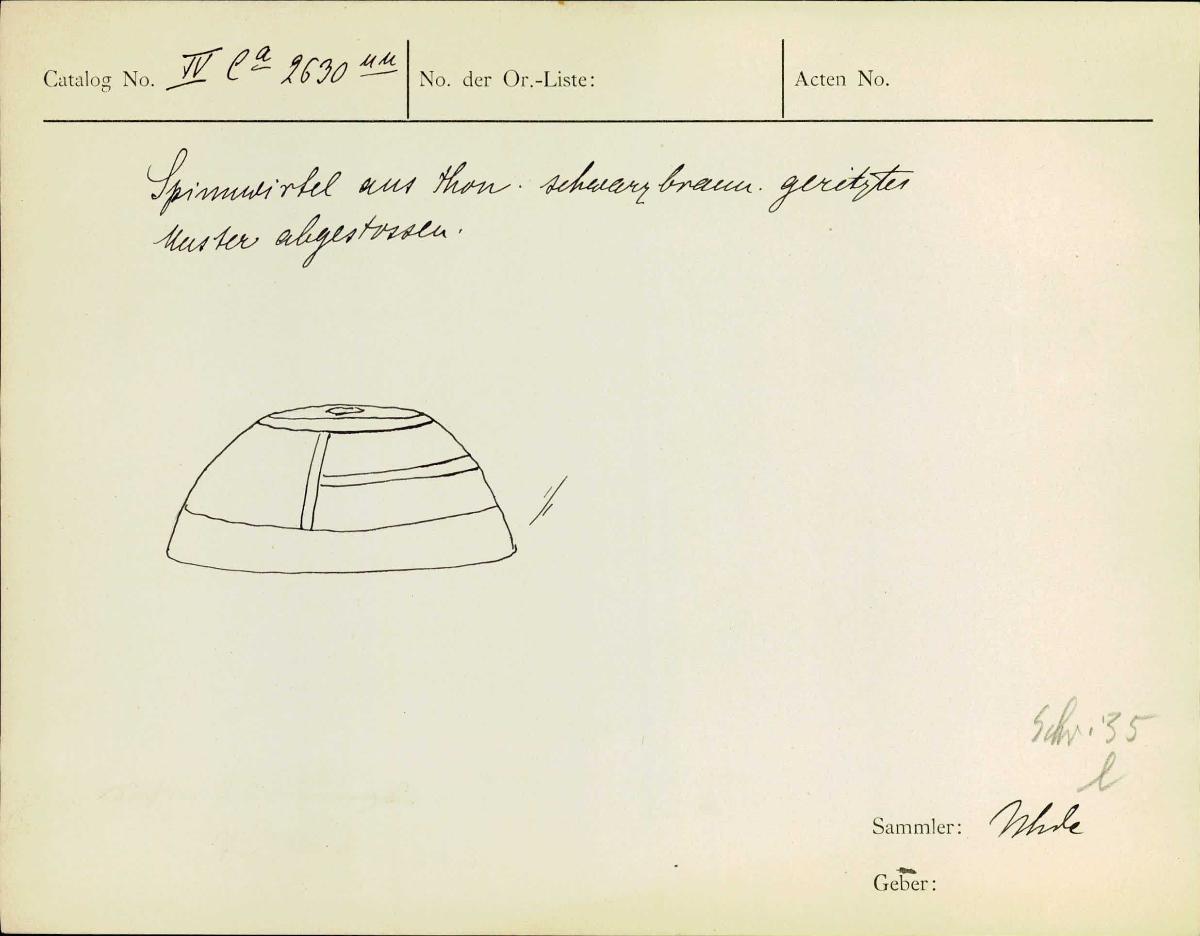 Catalog No. IV Ca 2630 uu
No. der Or.-Liste:
Acten No.
Spinnwirtel aus Thon. schwarzbraun. geritztes
Muster abgestossen.
Schr. 35
l
Sammler: Uhde
Geber: